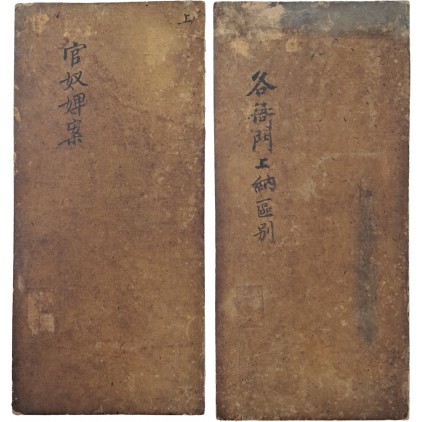 上
官奴婢案
各衙門上納區別